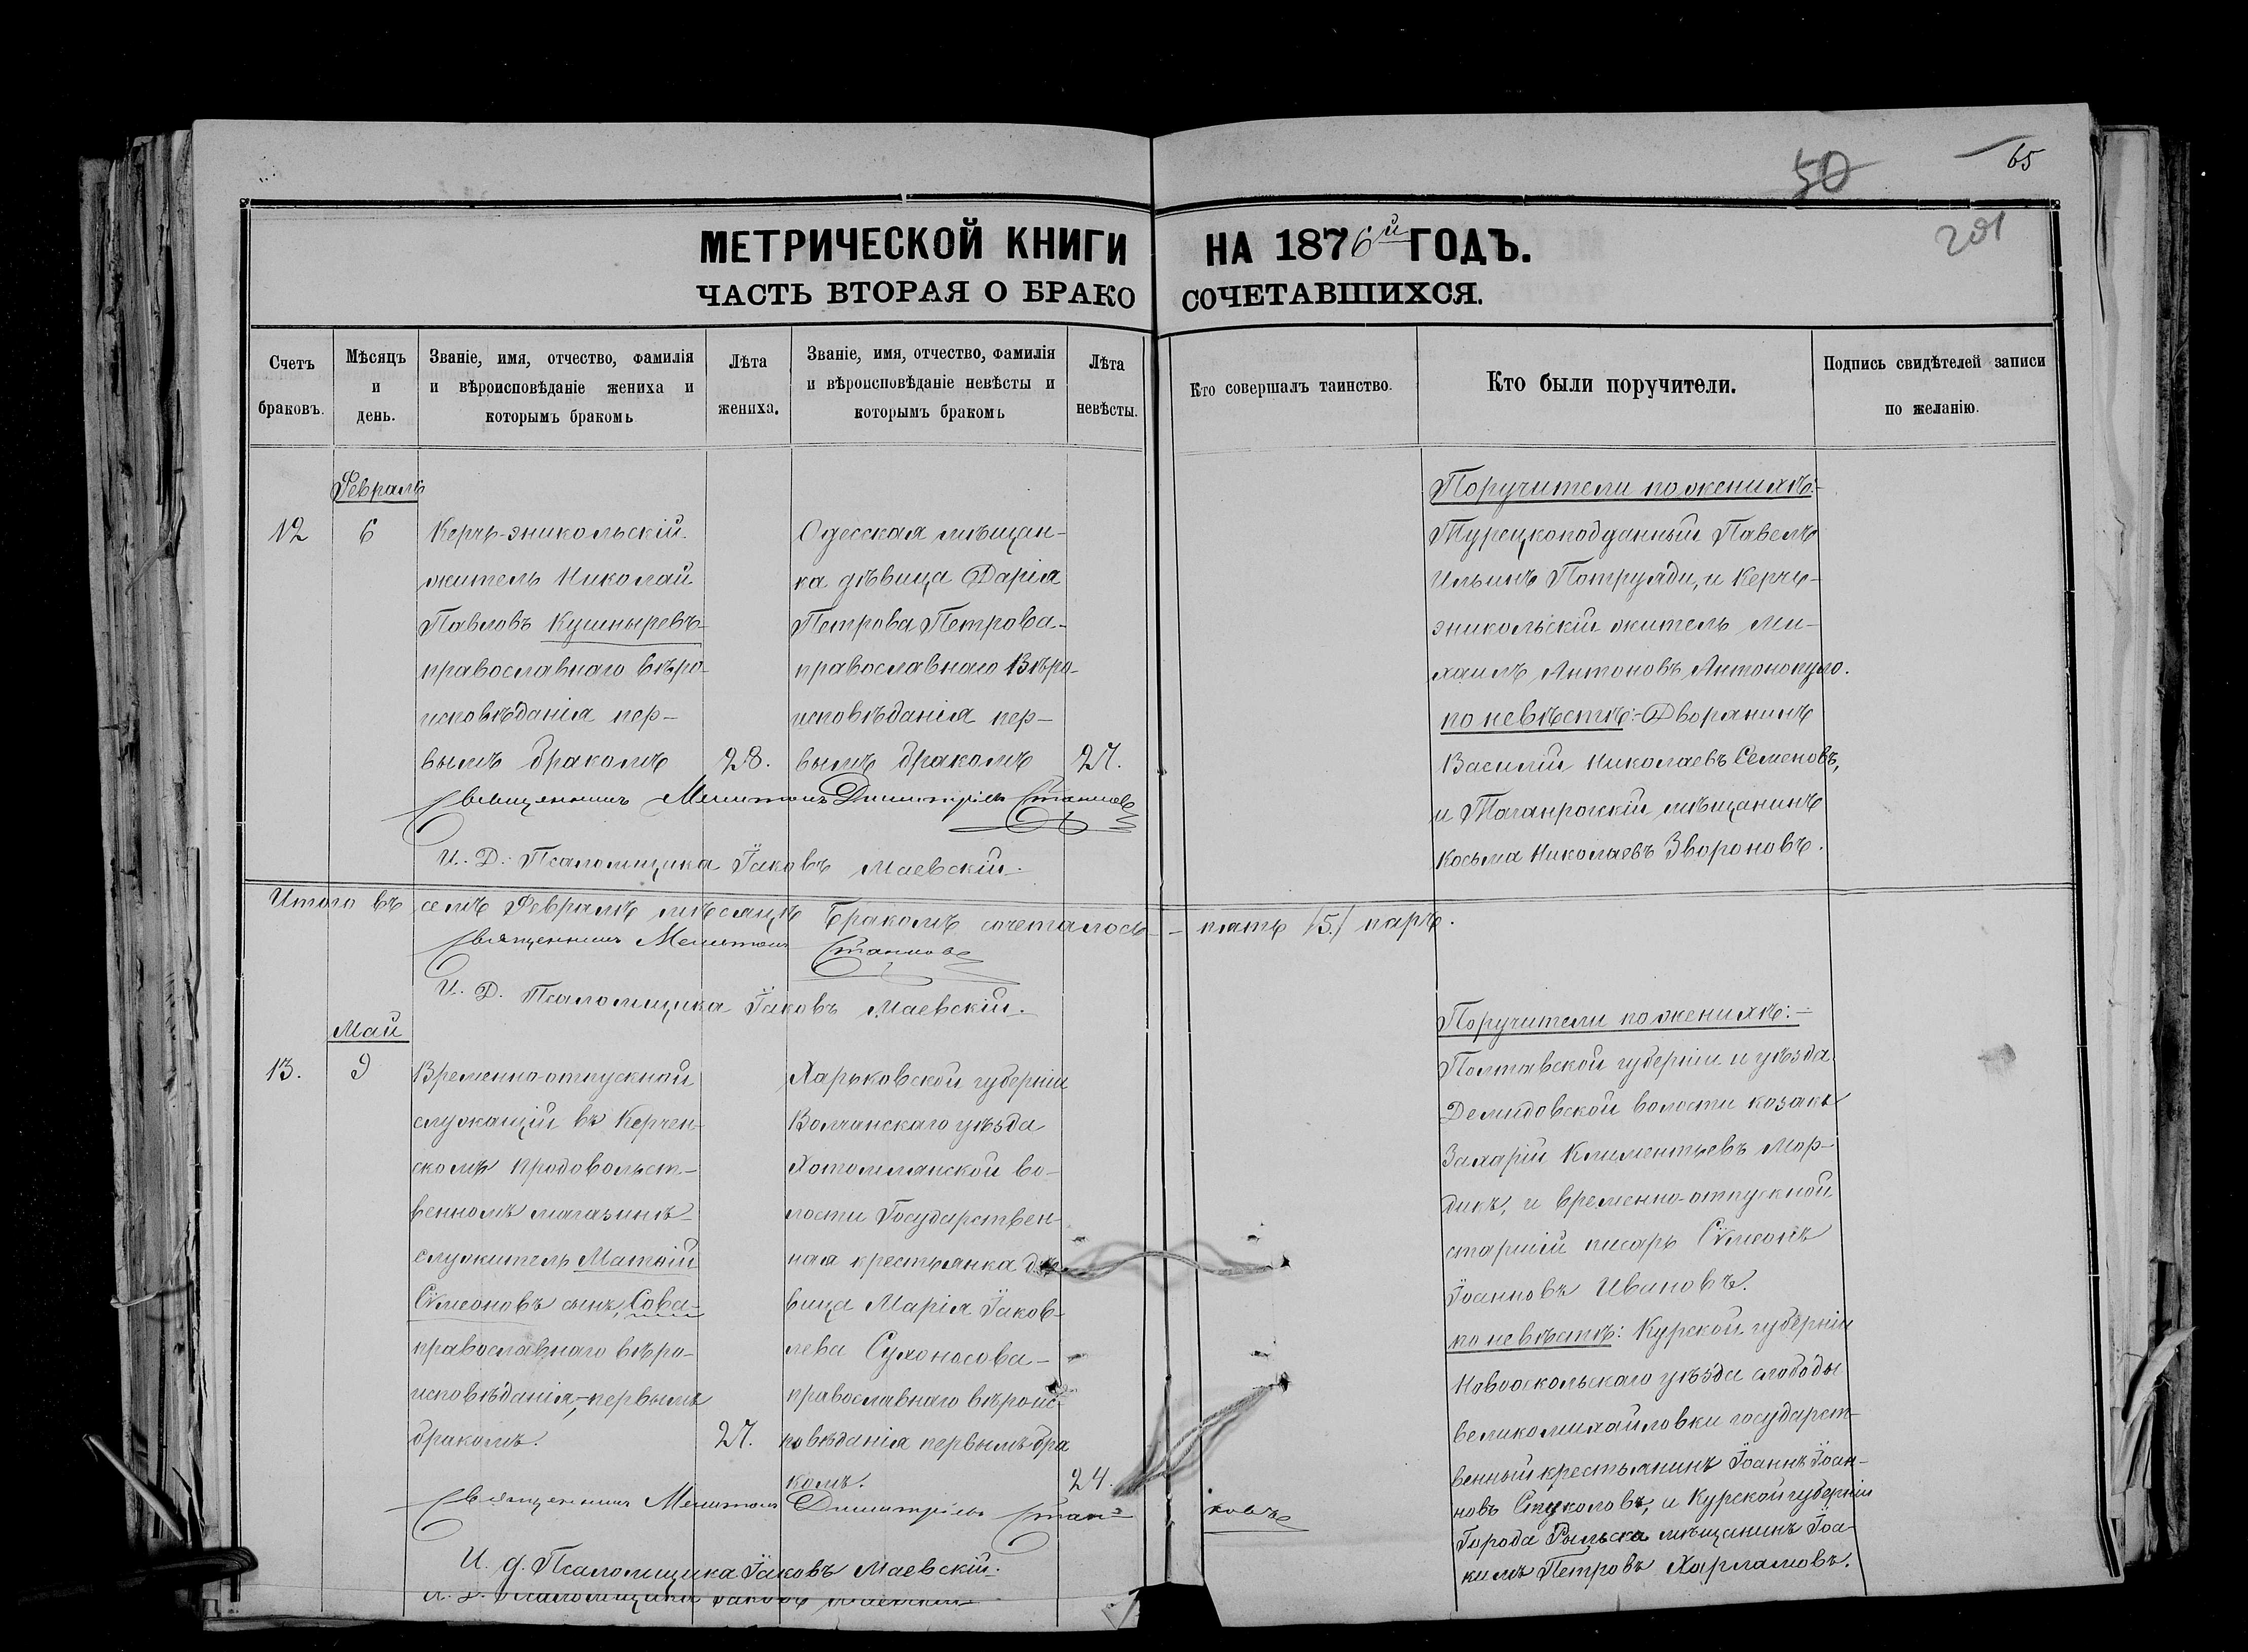 50
65
201
МЕТРИЧЕСКОЙ КНИГИ НА 1876й ГОДЪ.
ЧАСТЬ ВТОРАЯ О БРАКОСОЧЕТАВШИХСЯ.
Счетъ
браковъ.
Мѣсяцъ
и
день.
Званіе, имя, отчество, фамилія
и вѣроисповѣданіе жениха и
которымъ бракомъ
Лѣта
жениха.
Званіе, имя, отчество, фамилія
и вѣроисповѣданіе невѣсты и
которымъ бракомъ
Лѣта
невѣсты.
Кто совершалъ таинство.
Кто были поручители.
Подпись свидѣтелей записи
по желанію.
Февраль
12
6
Керчь-эникольскій
житель Николай
Павловъ Кушныревъ
православнаго вѣро-
исповѣданія пер-
вымъ бракомъ
28.
Одесская мѣщан-
ка дѣвица Дарія
Петрова Петрова-
православнаго вѣро-
исповѣданія пер-
вымъ бракомъ
27.
Поручители по женихѣ:-
Турецкоподданный Павелъ
Ильинъ Потруяди, и Керчь-
эникольскій житель Ми-
хаилъ Антоновъ Антонопуло.
по невѣстѣ:- Дворянинъ
Василій Николаевъ Семеновъ,
и Таганрогскій мѣщанинъ
Косьма Николаевъ Звороновъ.
Священникъ Мелитонъ Димитріевъ Станковъ
И. Д. Псаломщика Іаковъ Маевскій.
Итого въ семъ Февралѣ мѣсяцѣ Бракомъ сочеталось - пять /5./ паръ.
Священникъ Мелитонъ Станковъ
И. Д. Псаломщика Іаковъ Маевскій.
Май
13.
9
Временно-отпускной
служащій въ Керчен-
скомъ продовольст-
венномъ магазинѣ
служитель Матѳій
Сѵмеоновъ сынъ Сова-
православнаго вѣро-
исповѣданія, первымъ
бракомъ.
27.
Харьковской губерніи
Волчанскаго уѣзда
Хотомлянской во-
лости Государствен-
ная крестьянка дѣ-
вица Марія Іаков-
лева Сухоносова-
православнаго вѣроис-
повѣданія первымъ бра
комъ.
24.
Поручители по женихѣ:-
Полтавской губерніи и уѣзда
Демидовской волости козакъ
Захарій Климентьевъ Мор-
дикъ, и временно-отпускной
старшій писарь Сѵмеонъ
Іоанновъ Ивановъ.
по невѣстѣ: Курской губерніи
Новооскольскаго уѣзда слободы
великомихайловки государст-
венный крестьянинъ Іоаннъ Іоан-
новъ Стуколовъ, и Курской губерніи
Города Рыльска мѣщанинъ Іоа-
кимъ Петровъ Харламовъ.
Священникъ Мелитонъ Димитріевъ Станковъ
И. д. Псаломщика Іаковъ Маевскій.
И. д. Псаломщика Іаковъ Маевскій